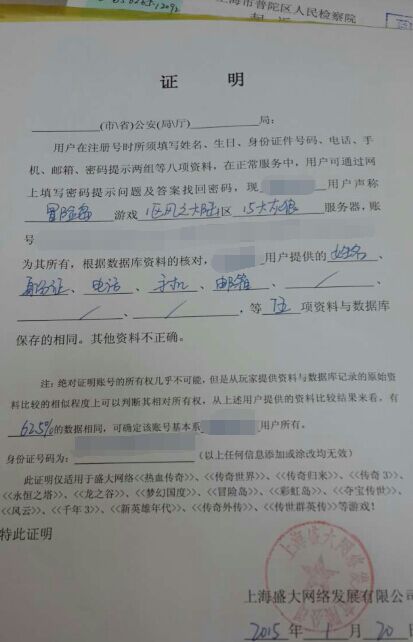 上海市普陀区人民检察院
证 明
(市\省)公安(局\厅) 局:
用户在注册号时所须填写姓名、生日、身份证件号码、电话、手
机、邮箱、密码提示两组等八项资料,在正常服务中,用户可通过网
上填写密码提示问题及答案找回密码,现 用户声称
冒险岛 游戏 区 15大灰狼 服务器,账
号
为其所有,根据数据库资料的核对, 用户提供的 姓名、
身份证、 电话、 手机、 邮箱、 / 、
、 / 、 ,等 伍 项资料与数据库
保存的相同。其他资料不正确。
注:绝对证明账号的所有权几乎不可能,但是从玩家提供资料与数据库记录的原始资
料比较的相似程度上可以判断其相对所有权,从上述用户提供的资料比较结果来看,有
62.5%的数据相同,可确定该账号基本系 用户所有。
身份证号码为: (以上任何信息添加或涂改均无效)
此证明仅适用于盛大网络<<热血传奇>>、<<传奇世界>>、<<传奇归来>>、<<传奇3>>、
<<永恒之塔>>、<<龙之谷>>、<<梦幻国度>>、<<冒险岛>>、<<彩虹岛>>、<<夺宝传世>>、
<<风云>>、<<千年3>>、<<新英雄年代>>、<<传奇外传>>、<<传世群英传>>等游戏!
特此证明
上海盛大网络发展有限公司
2015 年 1 月 20 日